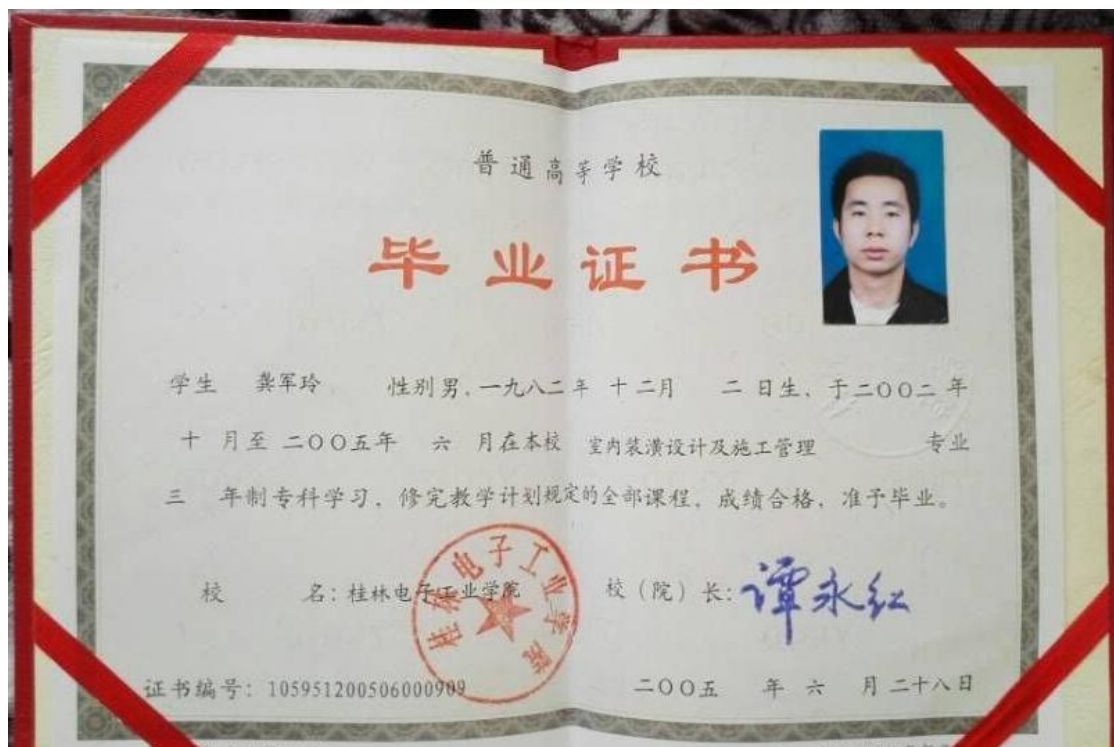 普通高等学校
毕业证书
学生 龚军玲 性别男，一九八二年 十二月 二 日生，于二〇〇二年
十 月至 二〇〇五年 六 月在本校 室内装潢设计及施工管理 专业
三 年制专科学习，修完教学计划规定的全部课程，成绩合格，准予毕业。
校 名：桂林电子工业学院 校（院）长：谭永红
桂林电子工业学院
证书编号：105951200506000909 二〇〇五 年 六 月 二十八日